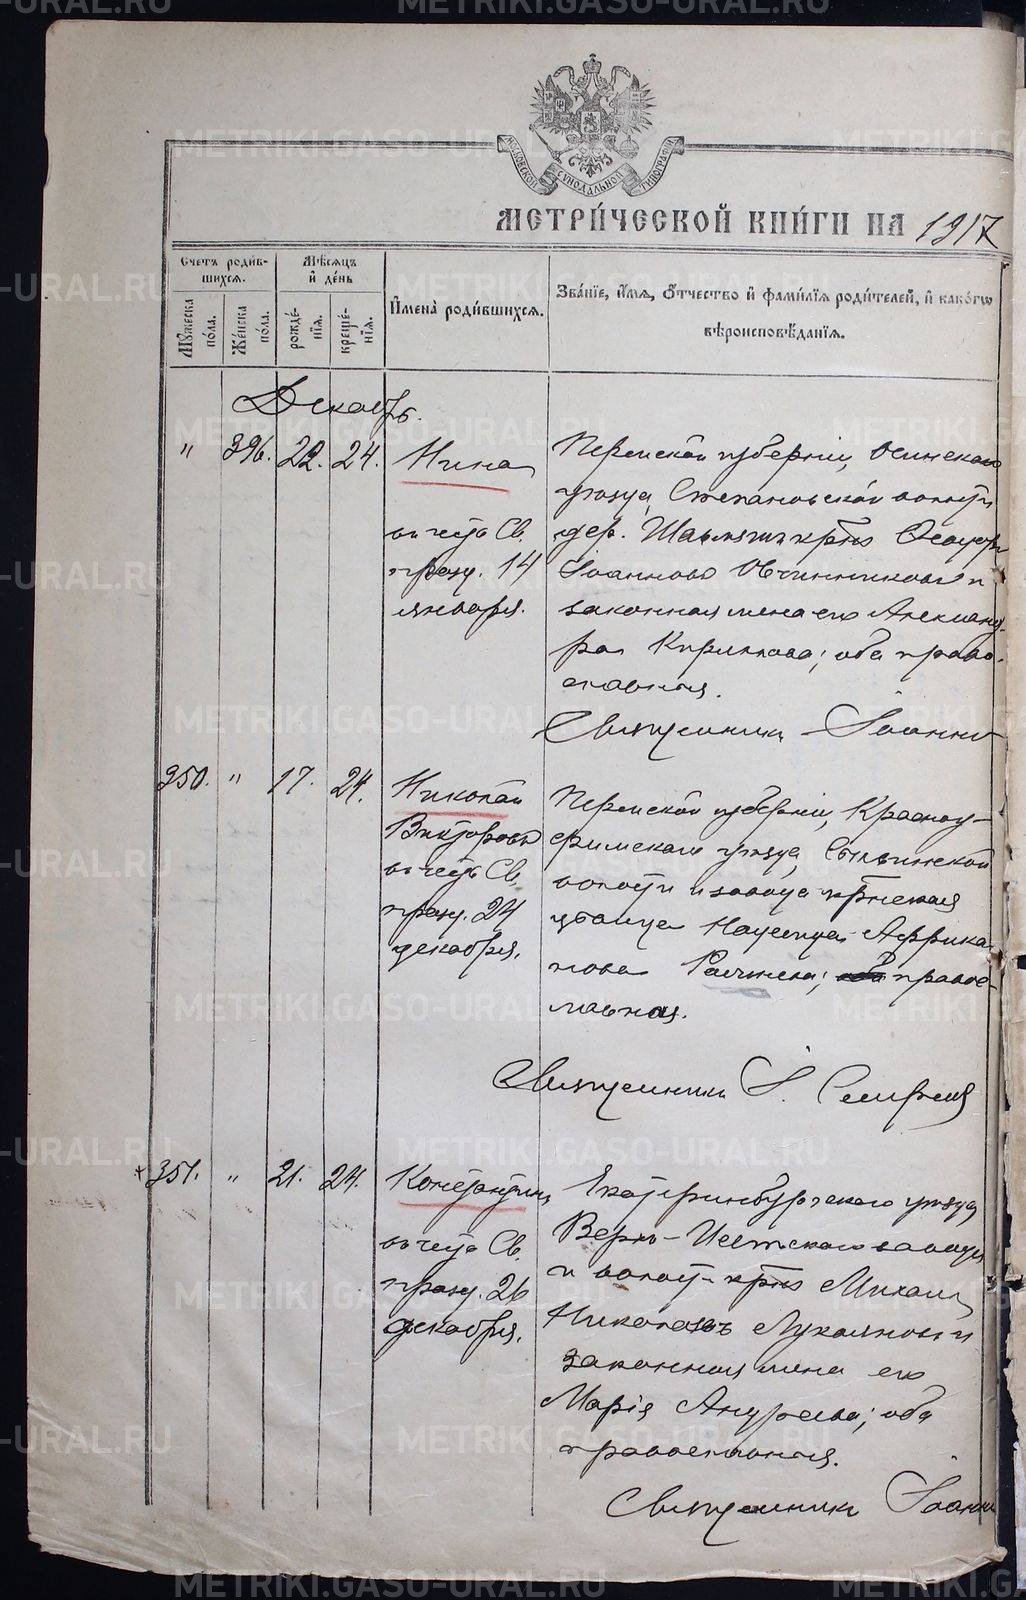 МОСКОВСКОЙ СѴНОДАЛЬНОЙ ТИПОГРАФІИ
МЕТРИ́ЧЕСКОЙ КНИ́ГИ НА 1917
Счетъ роди́в-
шихся.
Мѣсяцъ
и҆ де́нь
И҆мена̀ роди́вшихся.
Зва́нїе, и҆́мѧ, ѻ҆́тчество и҆ фами́лїѧ роди́телей, и҆ како́гѡ
вѣроисповѣ́данїѧ.
Мꙋ́жеска
по́ла.
Же́нска
по́ла.
рожде́-
нїѧ.
креще́-
нїѧ.
Декабрь.
" 396. 22. 24. Нина
въ честь Св.
празд. 14
января.
Пермской губерніи, Осинскаго
уѣзда, Степановской волости
дер. крнъ Ѳеодоръ
Іоанновъ Овчинниковъ и
законная жена его Александ-
ра Кириллова; оба право-
славныя.
Священникъ Іоаннъ
350. " 17. 24. Николай
Викторовъ
въ честь Св.
празд. 24
декабря.
Пермской губерніи, Красноу-
фимскаго уѣзда, Сылвинской
волости и завода крнская
дѣвица Африка-
нова; православная.
Священникъ І.
+ 351. " 21. 24. Константинъ
въ честь Св.
празд. 26
декабря.
Екатеринбургскаго уѣзда
Верхъ-Исетскаго завода
и волости крнъ Михаилъ
Николаевъ Лукояновъ и
законная жена его
Марія Андреева; оба
православныя.
Священникъ Іоаннъ
METRIKI.GASO-URAL.RU